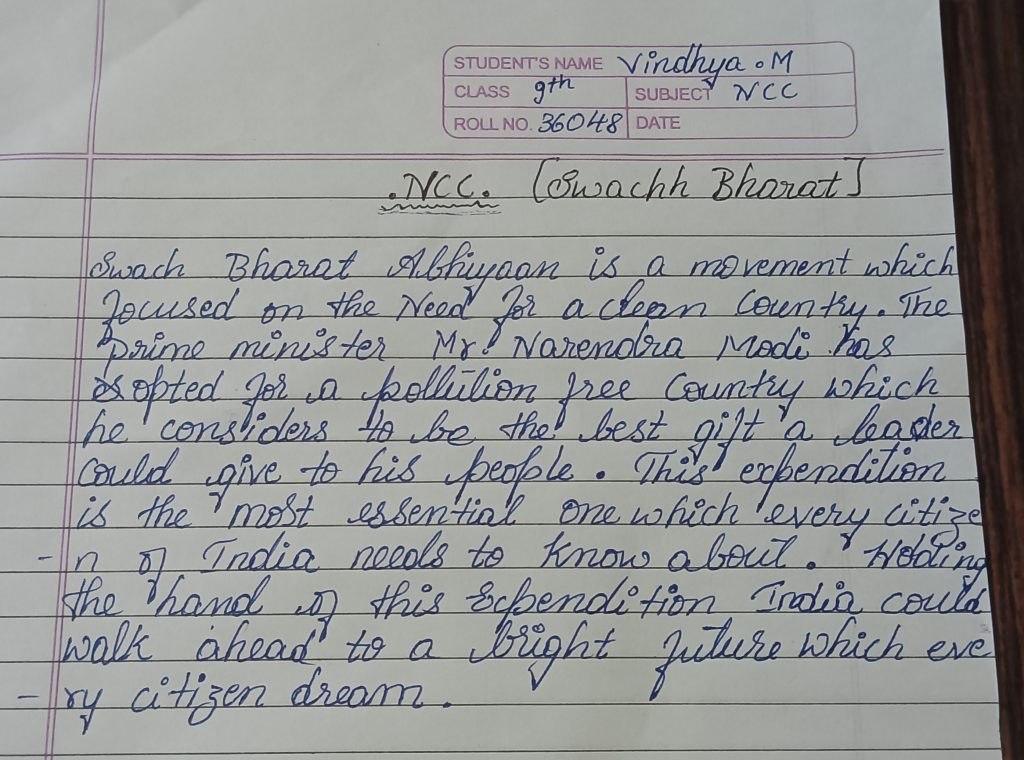 STUDENT'S NAME Vindhya . M
CLASS 9th SUBJECT NCC
ROLL NO. 36048 DATE
.NCC. [Swachh Bharat]
Swach Bharat Abhiyaan is a movement which
focused on the Need for a clean Country. The
prime minister Mr. Narendra Modi has
opted for a pollution free Country which
he considers to be the best gift a leader
could give to his people. This expendition
is the most essential one which every citize
- n of India needs to know about. Holding
the hand of this Expendition India could
walk ahead to a bright future which eve
- ry citizen dream.